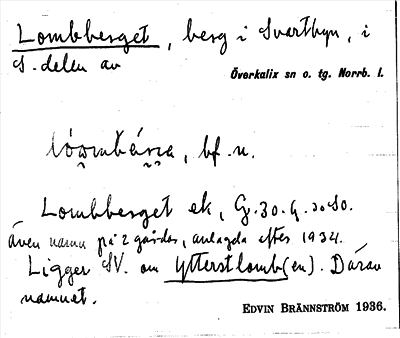 Lombberget, berg i Svartbyn, i
S. delen av
Överkalix sn o. tg. Norrb. l.
bf. n.
Lombberget ek, G. 30. G. 30 So.
även namn på 2 gårdar, anlagda efter 1934.
Ligger SV. om Ytterstlomb(en). Därav
namnet.
EDVIN BRÄNNSTRÖM 1936.